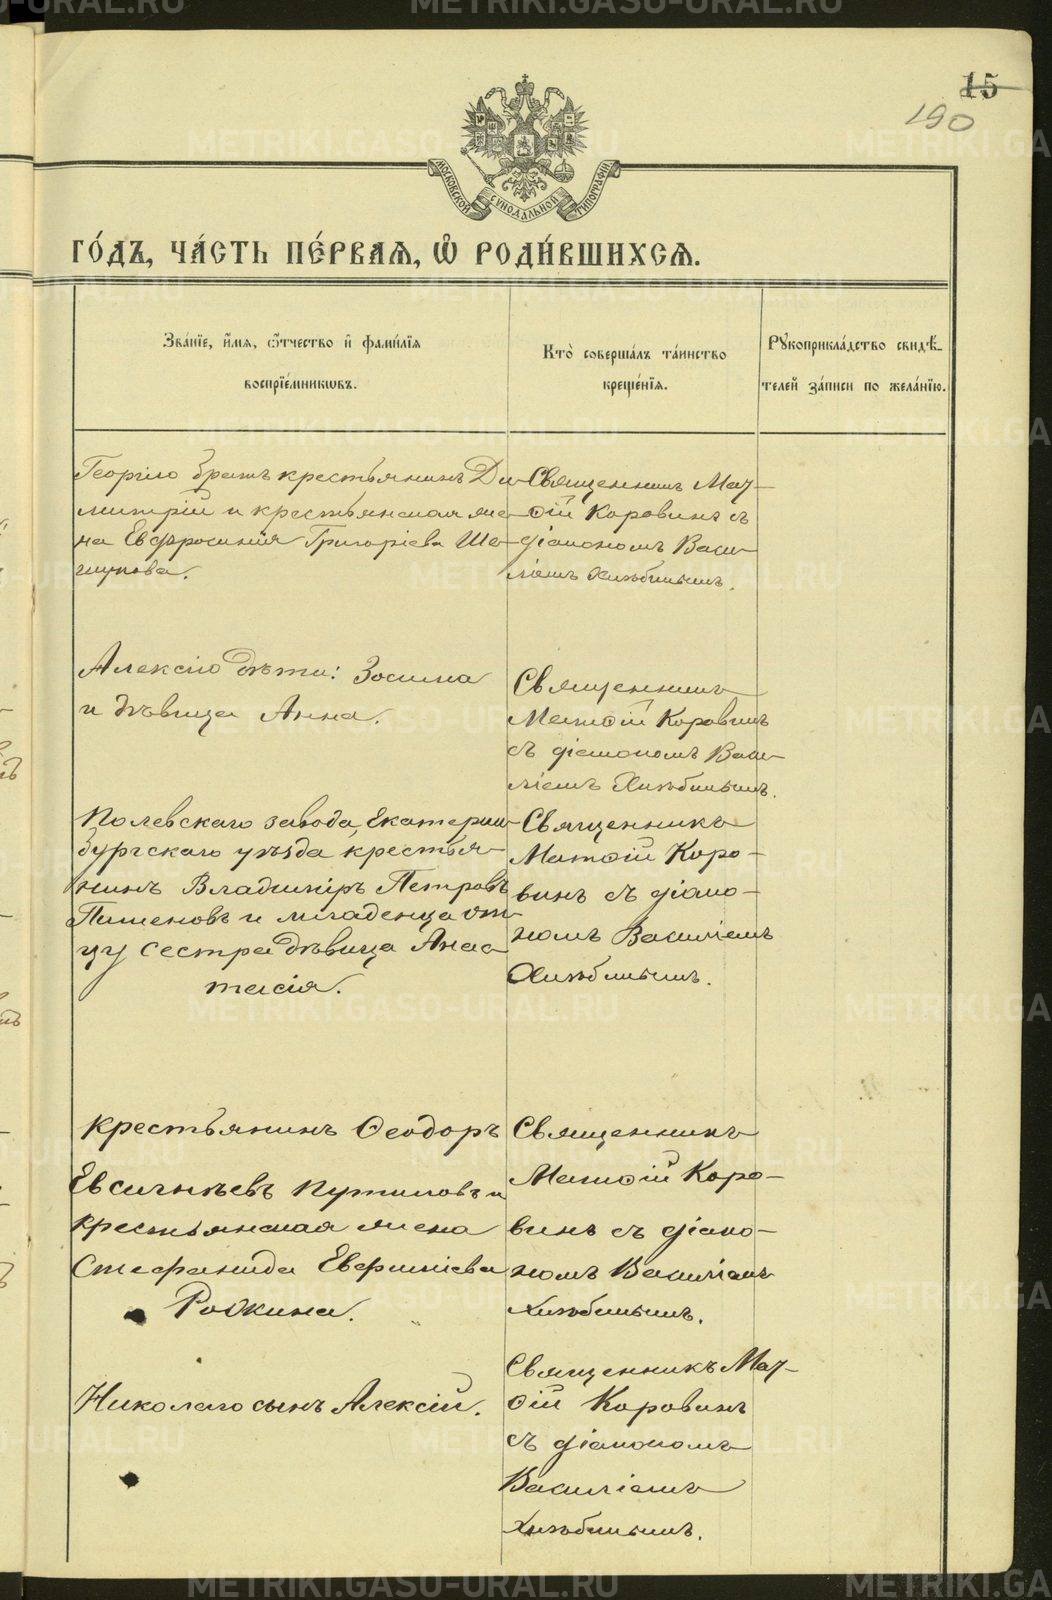 METRIKI.GASO-URAL.RU
15
190
МОСКОВСКОЙ СУНОДАЛЬНОЙ ТИПОГРАФІИ
ГО́ДЪ, ЧА́СТЬ ПЕ́РВАЯ, Ѽ РОДИ́ВШИХСЯ.
Зва́нїе, и҆́мя, ѻ҆́тчество и҆ фами́лїя
воспрїе́мникѡвъ.
Кто̀ соверша́лъ та́инство
креще́нїя.
Рꙋкоприкла́дство свидѣ́-
телей за́писи по жела́нїю.
Георгію братъ крестьянинъ Ди-
митрій и крестьянская же-
на Евфросинія Григоріева Ше-
Священникъ Мат-
ѳій Коровинъ съ
діакономъ Васи-
ліемъ Хлѣбинымъ.
Алексію дѣти: Зосима
и дѣвица Анна.
Священникъ
Матѳій Коровинъ
съ діакономъ Васи-
ліемъ Хлѣбинымъ.
Полевскаго завода, Екатерин-
бургскаго уѣзда крестья-
нинъ Владиміръ Петровъ
Пименовъ и младенца от-
цу сестра дѣвица Анас-
тасія.
Священникъ
Матѳій Коро-
винъ съ діако-
номъ Василіемъ
Хлѣбинымъ.
Крестьянинъ Ѳеодоръ
Евсигнѣевъ Путиловъ и
крестьянская жена
Стефанида Евфиміева
Рябкина.
Священникъ
Матѳій Коро-
винъ съ діако-
номъ Василіемъ
Хлѣбинымъ.
Николаю сынъ Алексій.
Священникъ Мат-
ѳій Коровинъ
съ діакономъ
Василіемъ
Хлѣбинымъ.